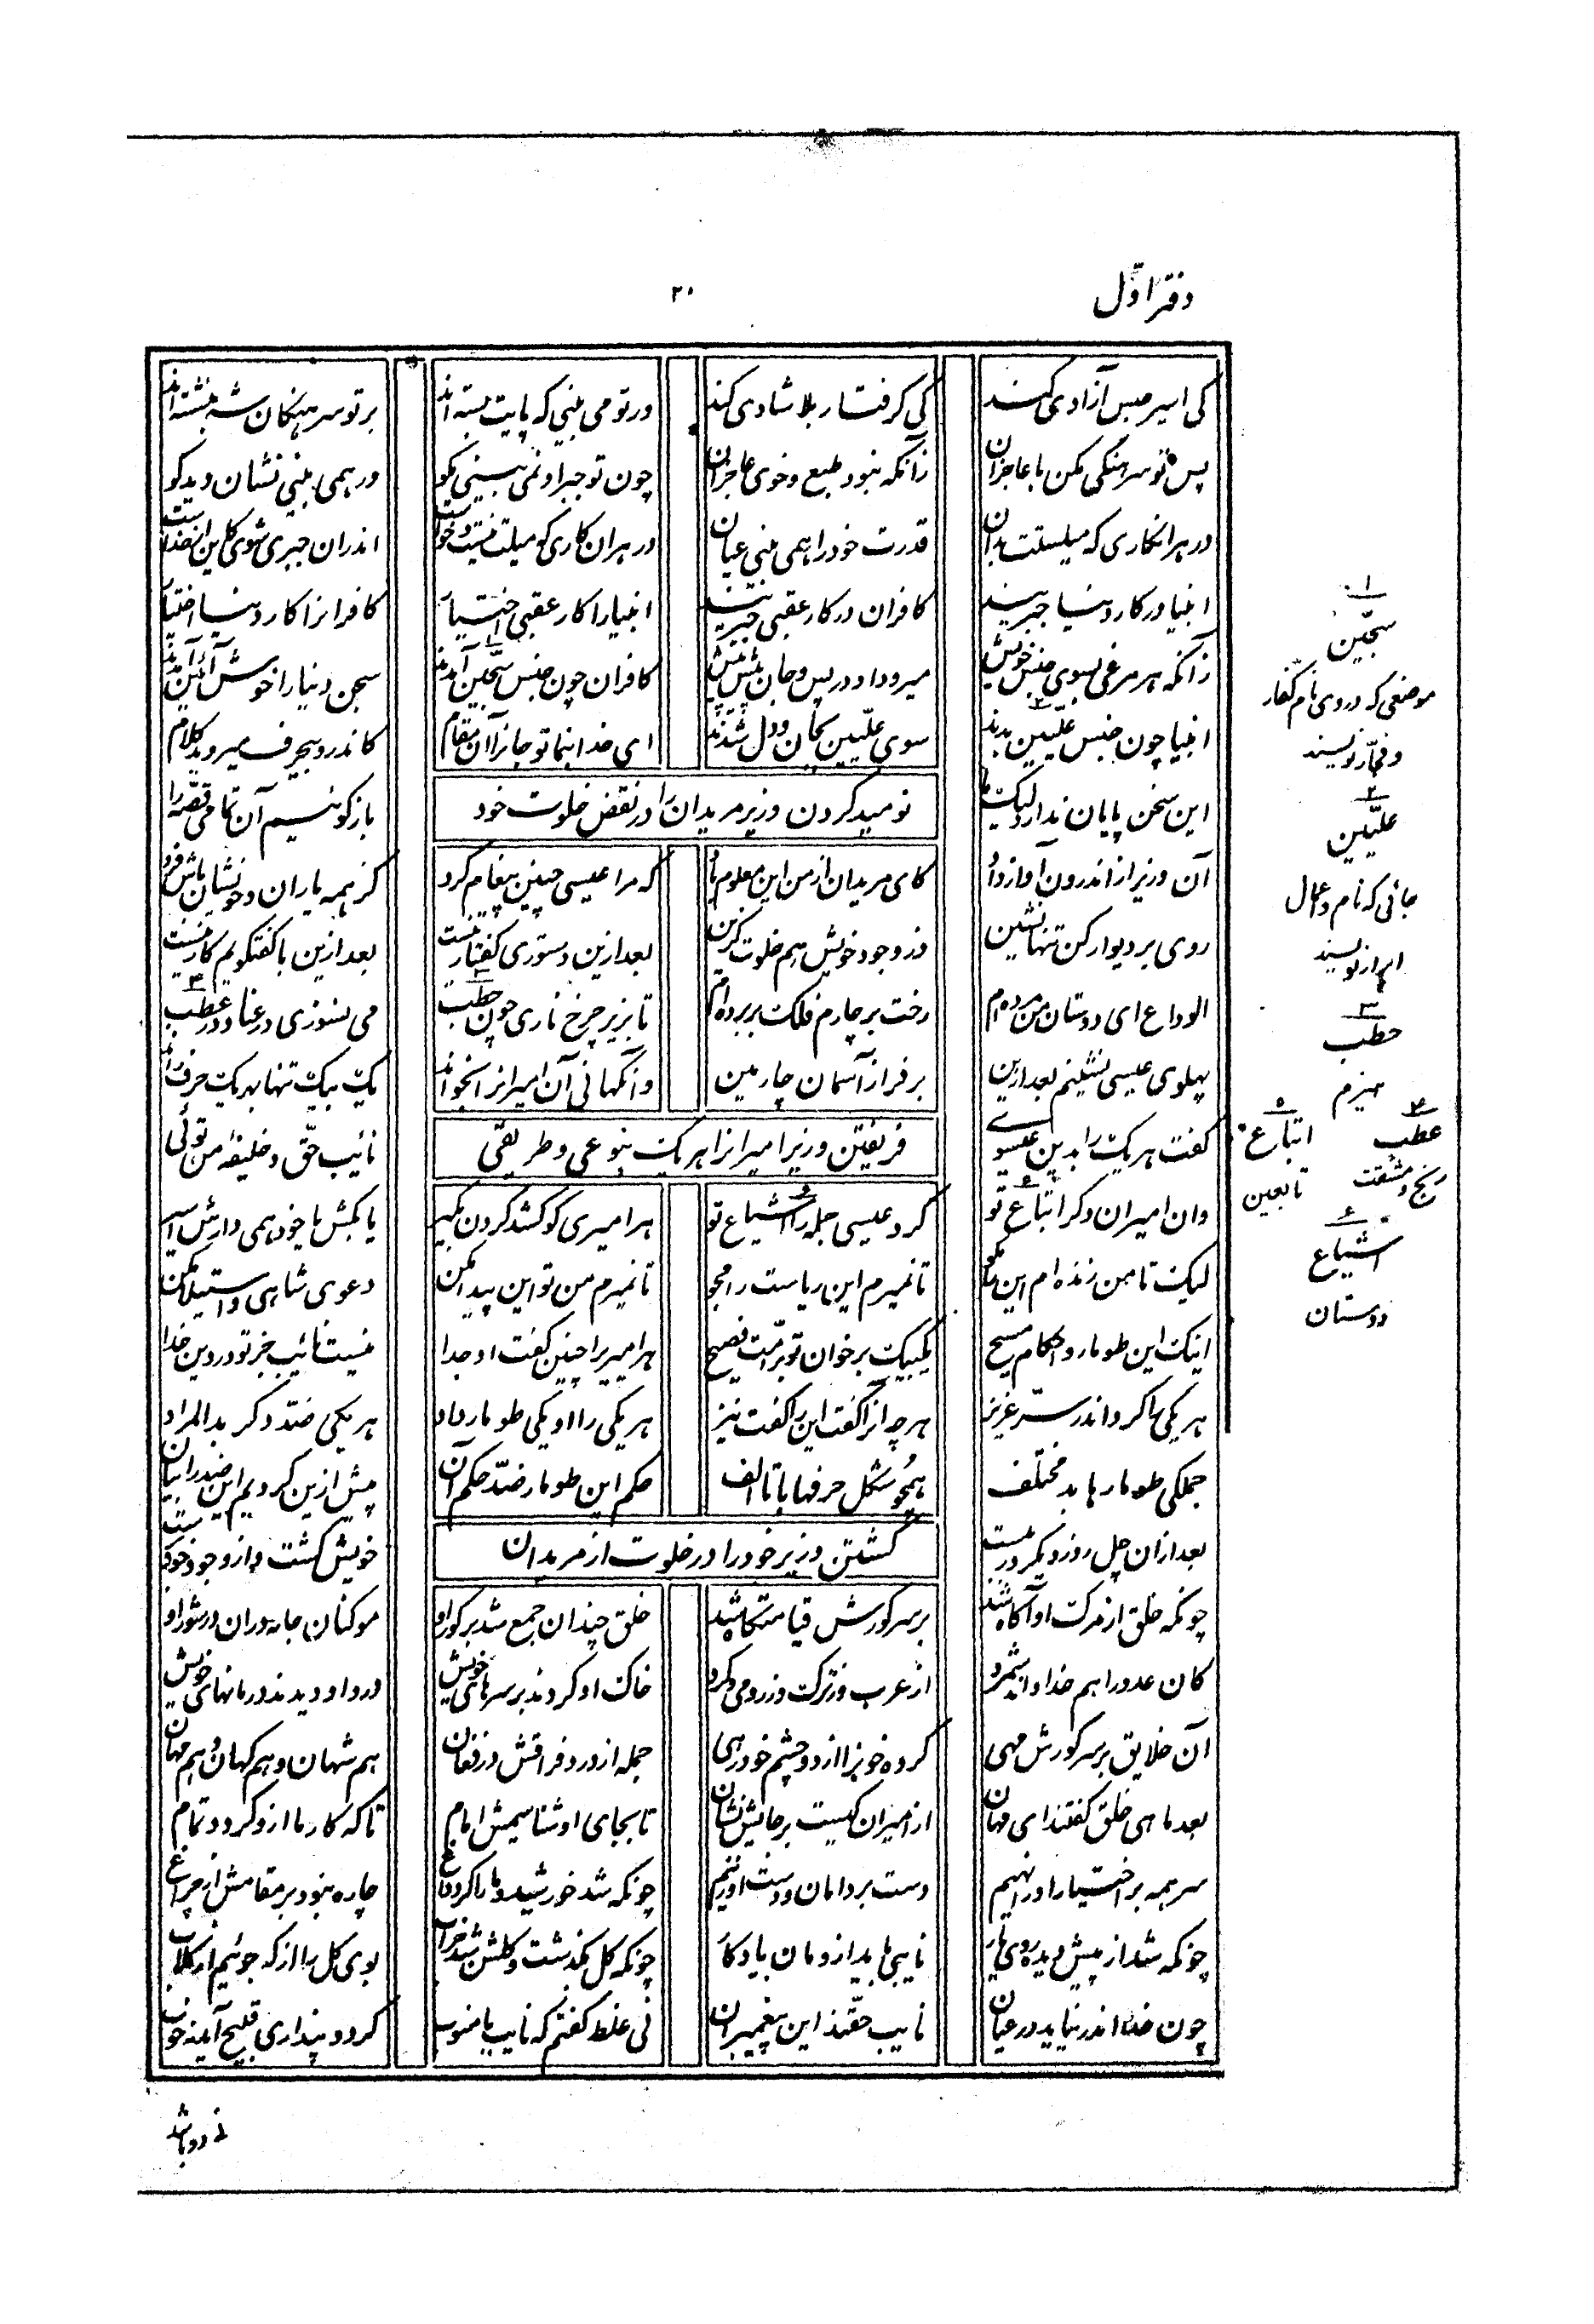 دفتر اوّل
۲۰
کی اسیر حبس آزادی کند کی گرفتار بلا شادی کند ور تو می بینی که پایت بسته اند بر تو سرهنگان شه بنشسته اند
پس تو سرهنگی مکن با عاجزان زانکه نبود طبع و خوی عاجز آن چون تو جبر او نمی بینی مگو ور همی بینی نشان دید کو
در هر آنکاری که میلستت بدان قدرت خود را همی بینی عیان در هر آن کاری که میلت نیست و خواست اندران جبری شوی کاین از خداست
انبیا در کار دنیا جبریند کافران در کار عقبی جبریند انبیا را کار عقبی اختیار کافرانرا کار دنیا اختیار
زانکه هر مرغی بسوی جنس خویش میرود او در پس و جان پیش پیش کافران چون جنس سجّین آمدند سجن دنیا را خوش آئین آمدند
انبیا چون جنس علیین بدند سوی علّیین بجان و دل شدند ای خدا بنما تو جانرا آن مقام کاندرو بیحرف میروید کلام
این سخن پایان ندارد لیک ما باز گوئیم آن تمامی قصّه را
نومید کردن وزیر مریدان را در نقض خلوت خود
آن وزیر از اندرون آواز داد کای مریدان از من این معلوم باد که مرا عیسی چنین پیغام کرد کز همه یاران و خویشان باش فرد
روی بر دیوار کن تنها نشین وز وجود خویش هم خلوت گزین بعد ازین دستوری گفتار نیست بعد ازین با گفتگویم کار نیست
الوداع ای دوستان من مرده ام رخت بر چارم فلک بر برده ام تا بزیر چرخ ناری چون حطب می نسوزی در عنا و در عطب
پهلوی عیسی نشینم بعد ازین بر فراز آسمان چارمین وانگهانی آن امیرانرا بخواند یک بیک تنها بهریک حرف راند
فریفتن وزیر امیرانرا هر یک بنوعی و طریقی
گفت هر یک را بدین عیسوی نائب حقّ و خلیفه من توئی
وان امیران دگر اتباع تو کرد عیسی جمله را اشیاع تو هر امیری کو کشد گردن بگیر یا بکش یا خود همی دارش اسیر
لیک تا من زنده ام این وا مگو تا نمیرم این ریاست را مجو تا نمیرم من تو این پیدا مکن دعوی شاهی و استیلا مکن
اینک این طومار و احکام مسیح یکبیک برخوان تو بر امّت فصیح هر امیریرا چنین گفت او جدا نیست نائب جز تو در دین خدا
هر یکی را کرد اندر سرّ عزیز هر چه آنرا گفت این را گفت نیز هر یکی را او یکی طومار داد هر یکی ضدّ دگر بد المراد
جملگی طومارها بد مختلف همچو شکل حرفها با تا الف حکم این طومار ضدّ حکم آن پیش ازین کردیم این ضد را بیان
گشتن وزیر خود را در خلوت از مریدان
بعد ازان چل روز دیگر در ببست خویش کشت و از وجود خود برست
چونکه خلق از مرگ او آگاه شد بر سر گورش قیامتگاه شد خلق چندان جمع شد بر گور او مو کنان جامه دران در شور او
کان عدد را هم خدا داند شمرد از عرب وز ترک وز رومی و کرد خاک او کردند بر سرهای خویش درد او دیدند درمانهای خویش
آن خلایق بر سر گورش مهی کرده خونرا از دو چشم خود رهی جمله از درد فراقش در فغان هم شهان و هم کهان و هم مهان
بعد ماهی خلق گفتند ای مهان از امیران کیست بر جایش نشان تا بجای او شناسیمش امام تا که کار ما ازو گردد تمام
سر همه بر اختیار او نهیم دست بر دامان و دست او زنیم چونکه شد خورشید و ما را کرد داغ چاره نبود بر مقامش از چراغ
چونکه شد از پیش دیده روی یار نایبی باید ازو مان یادگار چونکه گل بگذشت و گلشن شد خراب بوی گل را از که جوئیم از گلاب
چون خدا اندر نیاید در عیان نایب حقّند این پیغمبران نی غلط گفتم که نایب با منوب گر دو پنداری قبیح آید نه خوب
۱
سجّین
موضعی که در وی نام کفّار
و فجّار نویسند
۲
علّیین
جائی که نام و اعمال
ابرار نویسند
۳
حطب
هیزم
۴
عطب
رنج و مشقت
۵
اتباع
تابعین
۶
اشیاع
دوستان
نی دو باشد